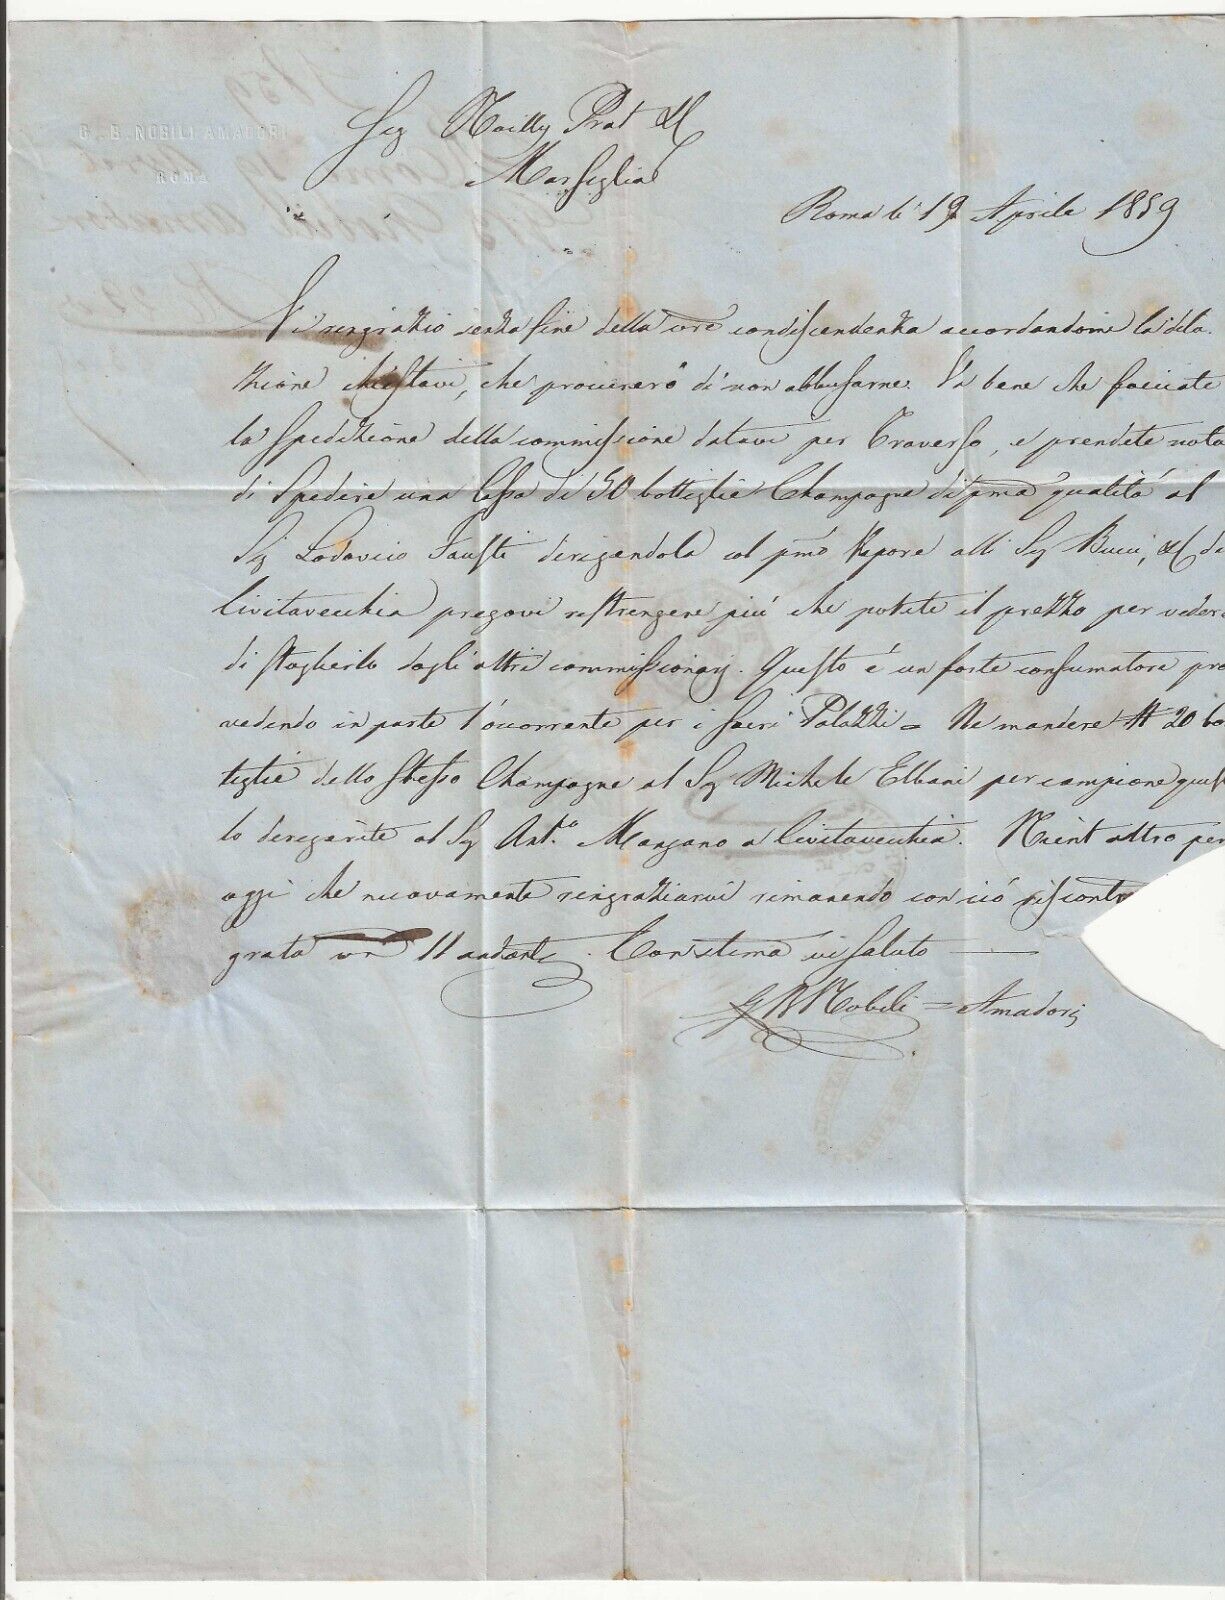 G. B. NOBILI AMADORI
ROMA
Sig Noilly Prat &C
Marsiglia
Roma li 19 Aprile 1859
Vi ringrazio senza fine della vre condiscendenza accordandomi la dila
zione chiestavi, che procurerò di non abbusarne. Va bene che facciate
la spedizione della commissione datavi per Traverso, e prendete nota
di spedire una Cassa di 50 bottiglie Champagne di pma qualità al
Sig Lodovico Fausti dirigendola col pmo Vapore alli Sig Bucci, &C di
Civitavecchia pregovi restringere più che potete il prezzo per vedere
di stoglierlo dagli altri commissionarj. Questo è un forte consumatore pro
vedendo in parte l'occorrente per i Sacri Palazzi = Ne mandere 20 bo
tiglie dello stesso Champagne al Sig Michele Elbani per campione ques
lo derigerete al Sig Ant.o Manzano a Civitavecchia. Nient altro per
oggi che nuovamente ringraziarvi rimanendo con ciò riscont
grata vra 11 andante. Con stima vi saluto
G B Nobili = Amadori